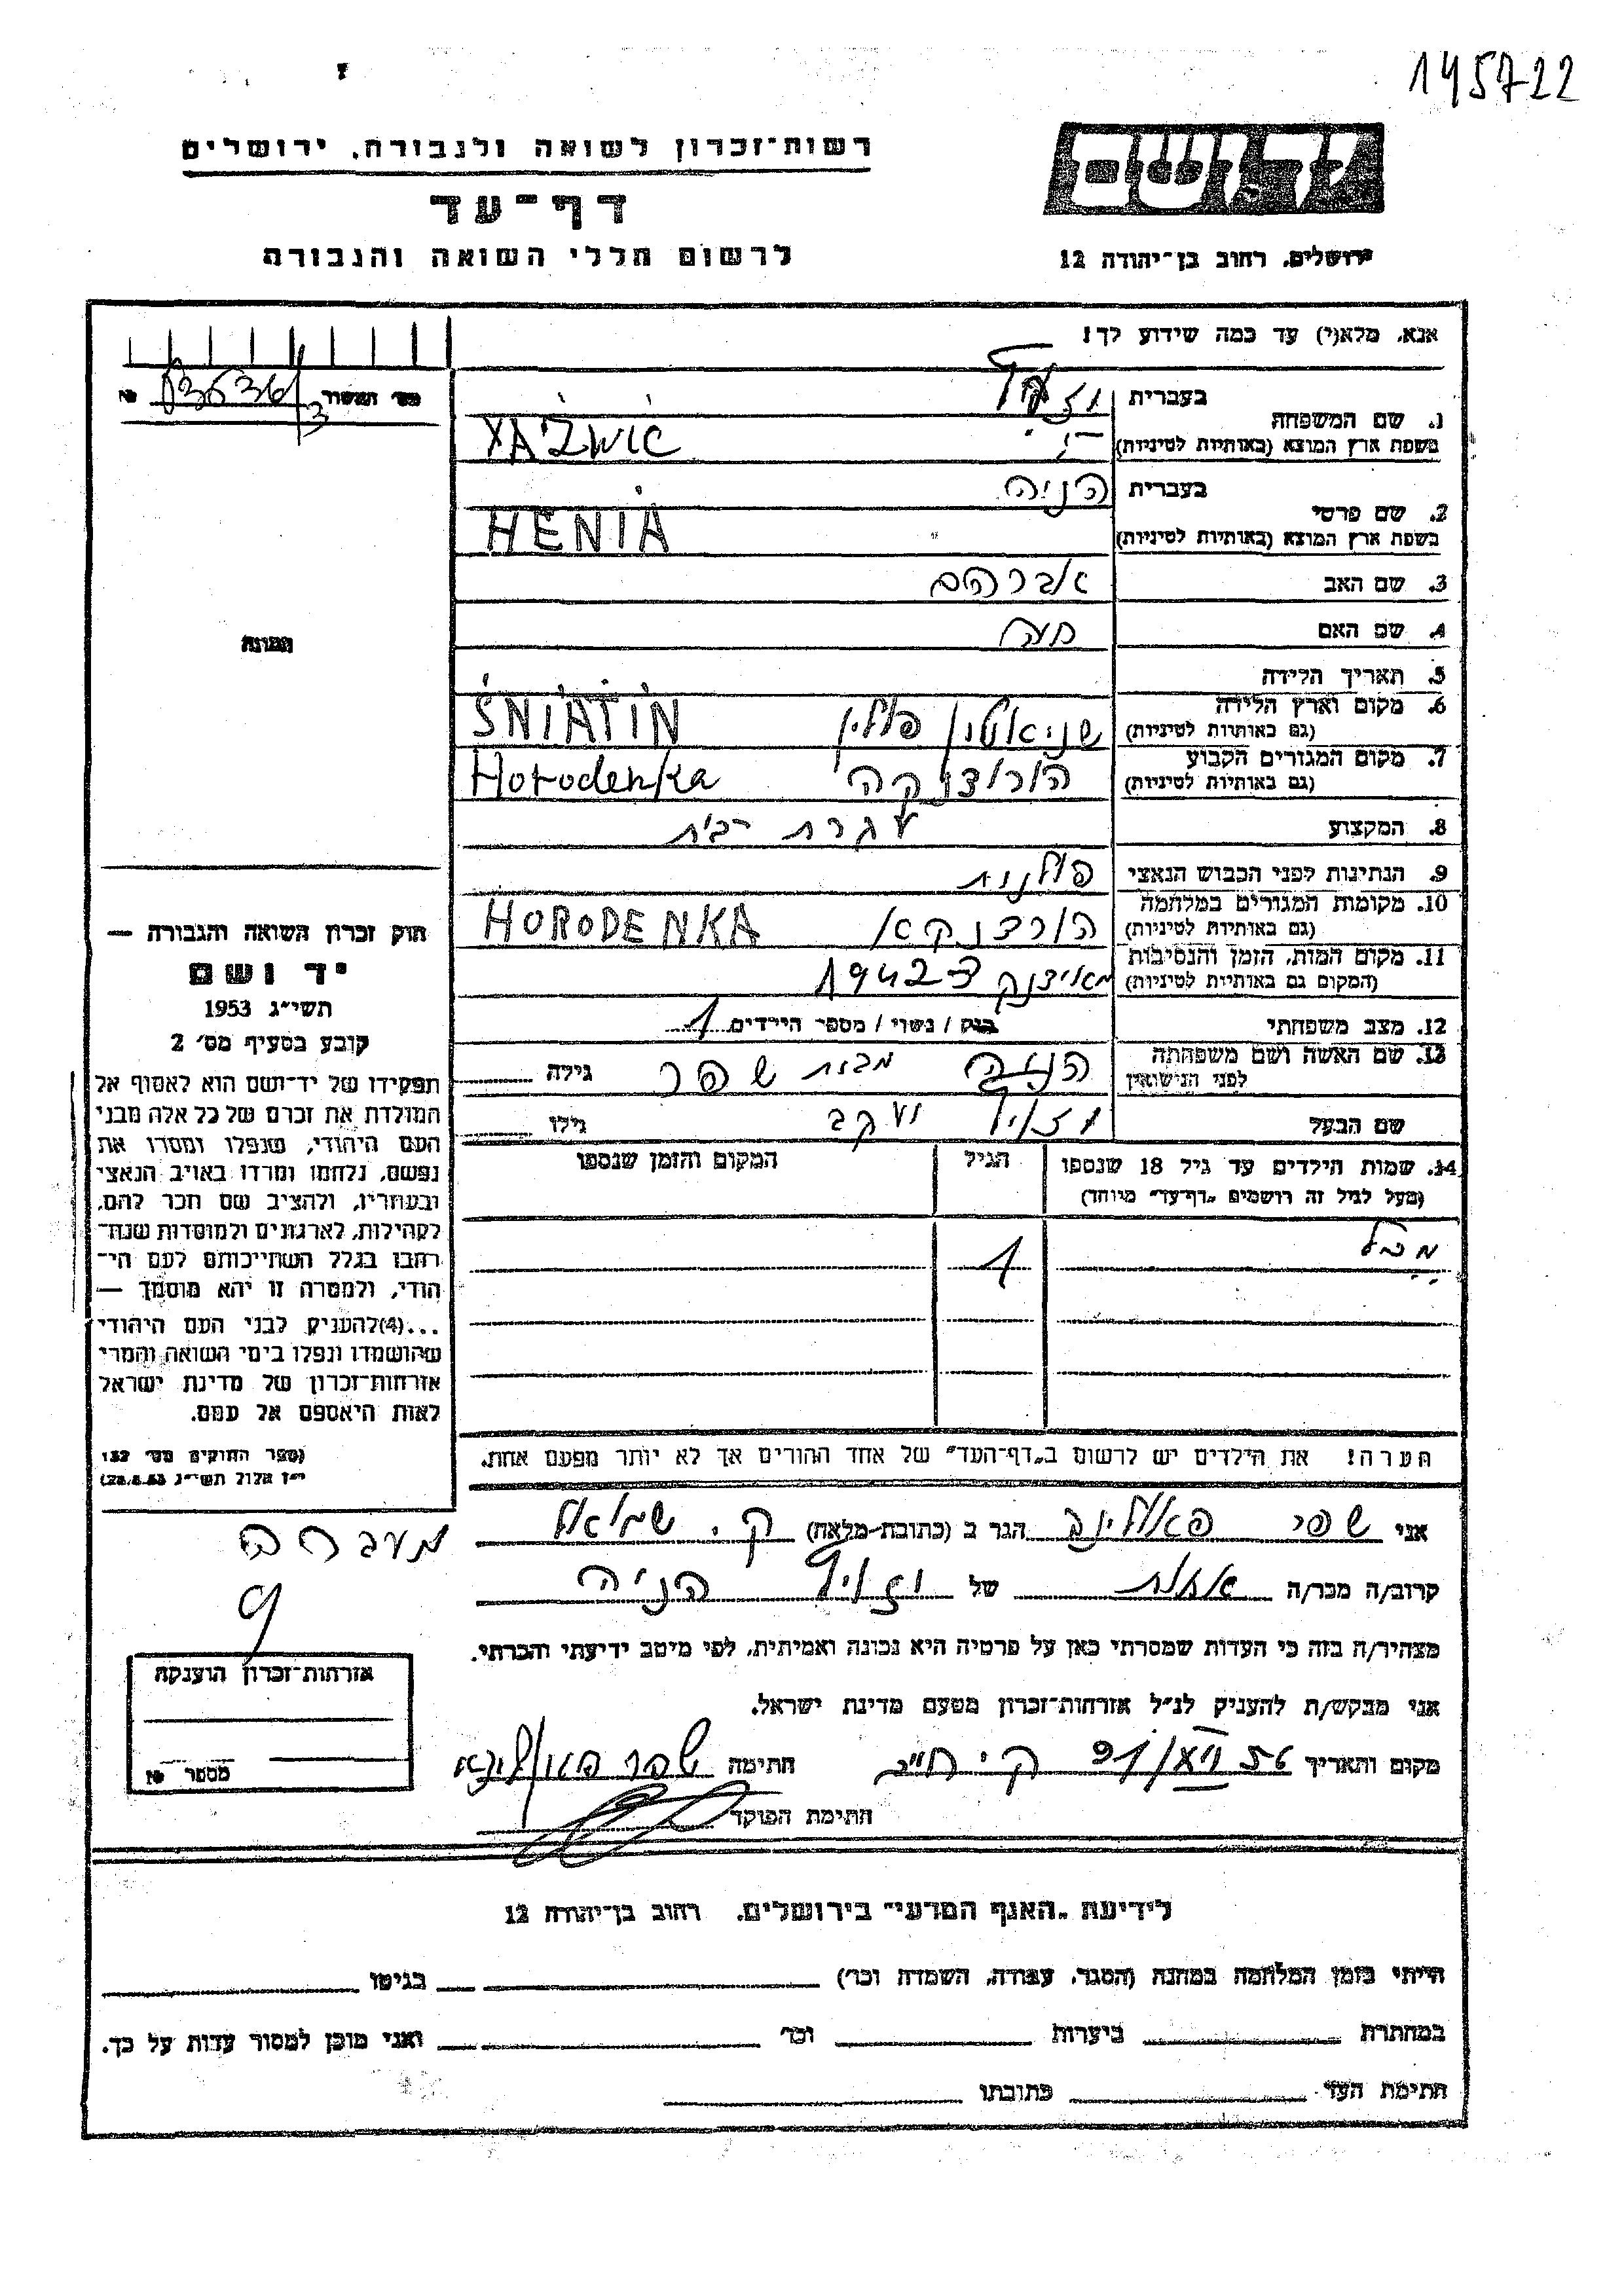 145722
רשות־זכרון לשואה ולגבורה, ירושלים
דף־עד
לרשום חללי השואה והגבורה
יד ושם
ירושלים, רחוב בן־יהודה 12
אנא, מלא(י) עד כמה שידוע לך!
1. שם המשפחה
בעברית
בשפת ארץ המוצא (באותיות לטיניות)
2. שם פרטי
בעברית הניה
בשפת ארץ המוצא (באותיות לטיניות) HENIA
3. שם האב אברהם
4. שם האם
5. תאריך הלידה
6. מקום וארץ הלידה שניאטין פולין ŚNIATIN
(גם באותיות לטיניות)
7. מקום המגורים הקבוע הורודנקה Horodenka
(גם באותיות לטיניות)
8. המקצוע עקרת בית
9. הנתינות לפני הכבוש הנאצי פולנית
10. מקומות המגורים במלחמה הורדנקא HORODENKA
(גם באותיות לטיניות)
11. מקום המות, הזמן והנסיבות
(המקום גם באותיות לטיניות)
12. מצב משפחתי רווק / נשוי / מספר הילדים 1
13. שם האשה ושם משפחתה הניה מבית שפר גילה
לפני הנישואין
שם הבעל יעקב גילו
14. שמות הילדים עד גיל 18 שנספו הגיל המקום והזמן שנספו
(מעל לגיל זה רושמים „דף־עד״ מיוחד)
1
הערה! את הילדים יש לרשום ב„דף־העד״ של אחד ההורים אך לא יותר מפעם אחת.
מס׳ המשור №
תמונה
חוק זכרון השואה והגבורה —
יד ושם
תשי״ג 1953
קובע בסעיף מס׳ 2
תפקידו של יד־ושם הוא לאסוף אל
המולדת את זכרם של כל אלה מבני
העם היהודי, שנפלו ומסרו את
נפשם, נלחמו ומרדו באויב הנאצי
ובעוזריו, ולהציב שם וזכר להם,
לקהילות, לארגונים ולמוסדות שנח־
רבו בגלל השתייכותם לעם הי־
הודי, ולמטרה זו יהא מוסמך —
...(4)להעניק לבני העם היהודי
שהושמדו ונפלו בימי השואה והמרי
אזרחות־זכרון של מדינת ישראל
לאות היאספם אל עמם.
(ספר החוקים מס׳ 132
י״ז אלול תשי״ג 28.8.53)
אני הגר ב (כתובת מלאה) ק. שמואל
מעברה
9
קרוב/ה מכר/ה אחות של הניה
מצהיר/ה בזה כי העדות שמסרתי כאן על פרטיה היא נכונה ואמיתית, לפי מיטב ידיעתי והכרתי.
אני מבקש/ת להעניק לנ״ל אזרחות־זכרון מטעם מדינת ישראל.
מקום והתאריך חתימה
חתימת הפוקד
אזרחות־זכרון הוענקה
מספר №
לידיעת „האגף המדעי״ בירושלים, רחוב בן־יהודה 12
הייתי בזמן המלחמה במחנה (הסגר, עבודה, השמדה וכו׳) בגיטו
במחתרת ביערות וכו׳ ואני מוכן למסור עדות על כך.
חתימת העד כתובתו